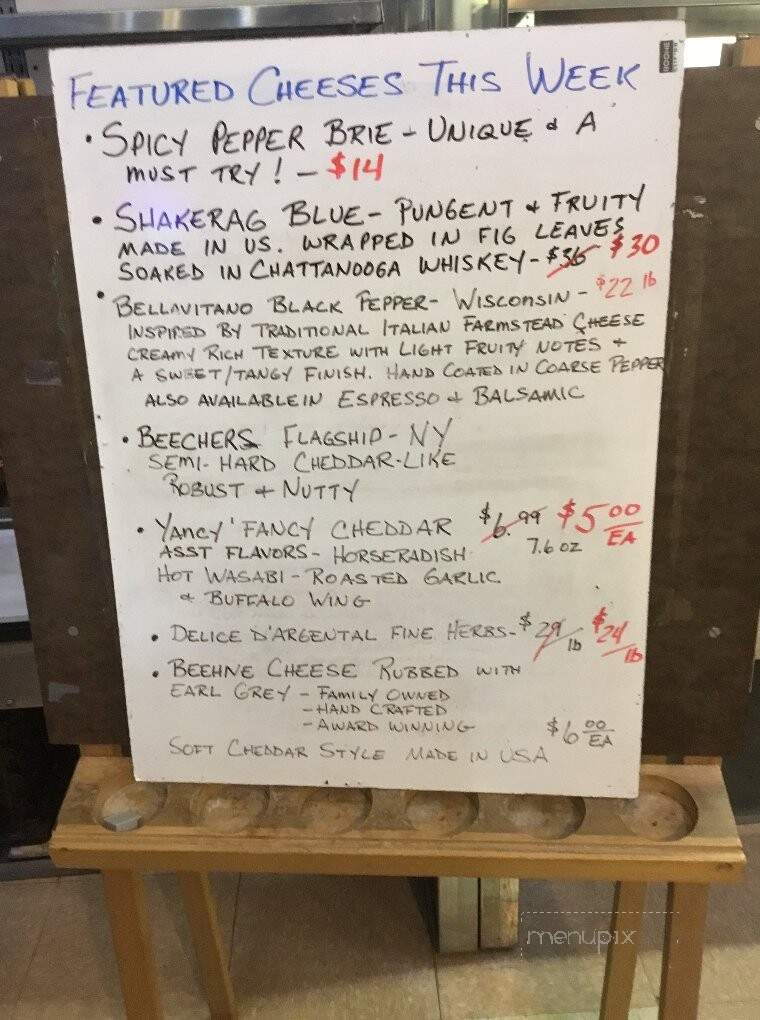 FEATURED CHEESES THIS WEEK
• SPICY PEPPER BRIE - UNIQUE & A
MUST TRY! - $14
• SHAKERAG BLUE - PUNGENT + FRUITY
MADE IN US. WRAPPED IN FIG LEAVES
SOAKED IN CHATTANOOGA WHISKEY - $36 $30
• BELLAVITANO BLACK PEPPER - WISCONSIN - $22 lb
INSPIRED BY TRADITIONAL ITALIAN FARMSTEAD CHEESE
CREAMY RICH TEXTURE WITH LIGHT FRUITY NOTES +
A SWEET/TANGY FINISH. HAND COATED IN COARSE PEPPER
ALSO AVAILABLE IN ESPRESSO & BALSAMIC
• BEECHERS FLAGSHIP - NY
SEMI-HARD CHEDDAR-LIKE
ROBUST + NUTTY
• YANCY' FANCY CHEDDAR $6.99 $5 00 EA
ASST FLAVORS - HORSERADISH 7.6 OZ
HOT WASABI - ROASTED GARLIC
& BUFFALO WING
• DELICE D'ARGENTAL FINE HERBS - $29 lb $24 lb
• BEEHNE CHEESE RUBBED WITH
EARL GREY - FAMILY OWNED
- HAND CRAFTED
- AWARD WINNING $6 00 EA
SOFT CHEDDAR STYLE MADE IN USA
menupix